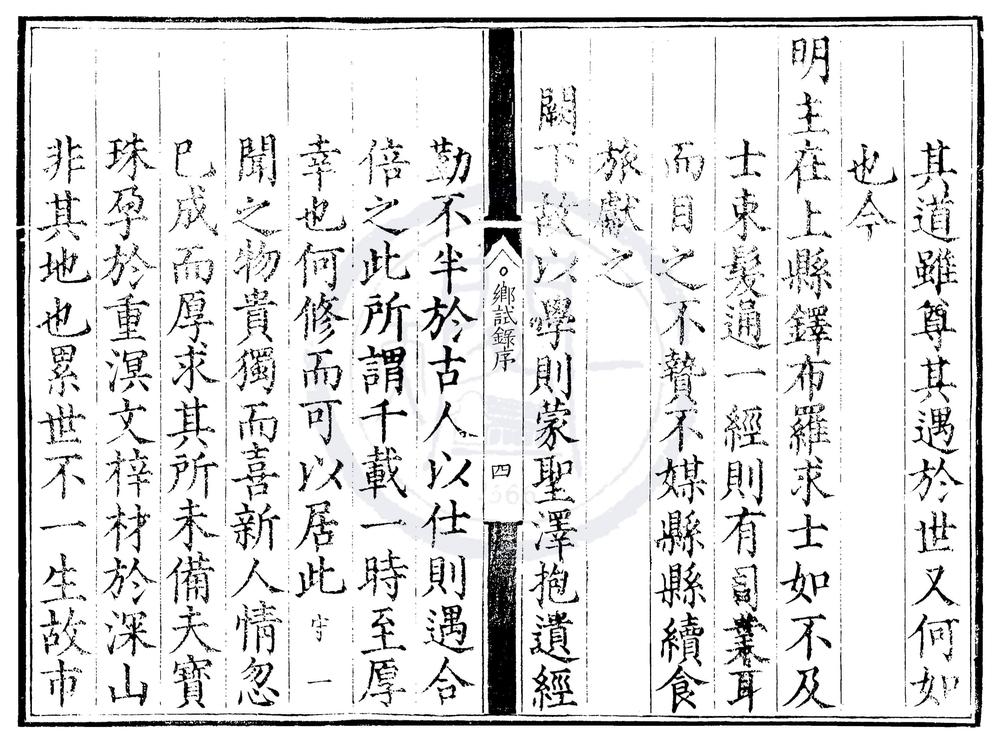 其道雖尊其遇於世又何如
也今
明主在上縣鐸布羅求士如不及
士束髮通一經則有司業耳
而目之不贄不媒縣縣續食
旅獻之
闕下故以學則蒙聖澤抱遺經
鄉試錄序
四
勤不半於古人以仕則遇合
倍之此所謂千載一時至厚
幸也何修而可以居此
聞之物貴獨而喜新人情忽
已成而厚求其所未備夫寶
珠孕於重溟文梓材於深山
非其地也累世不一生故市